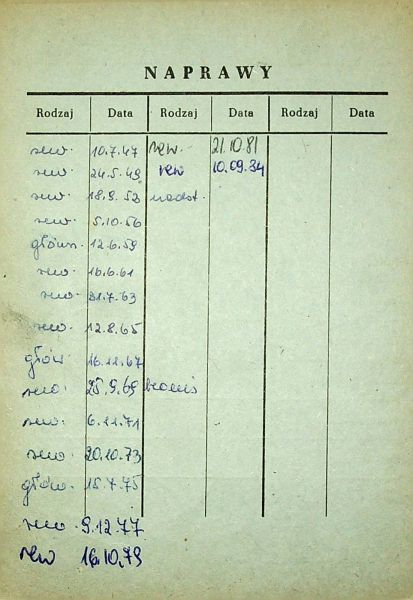 NAPRAWY
Rodzaj Data Rodzaj Data Rodzaj Data
rew. 10.7.47 rew. 21.10.81
rew. 24.5.49 rew 10.09.84
rew. 18.9.53 nadst.
rew. 5.10.56
główn. 12.6.59
rew. 16.6.61
rew. 21.7.63
rew. 12.8.65
głów. 16.11.67
rew. 25.9.69
rew. 6.11.71
rew. 20.10.73
głów. 15.7.75
rew. 9.12.77
rew 16.10.79